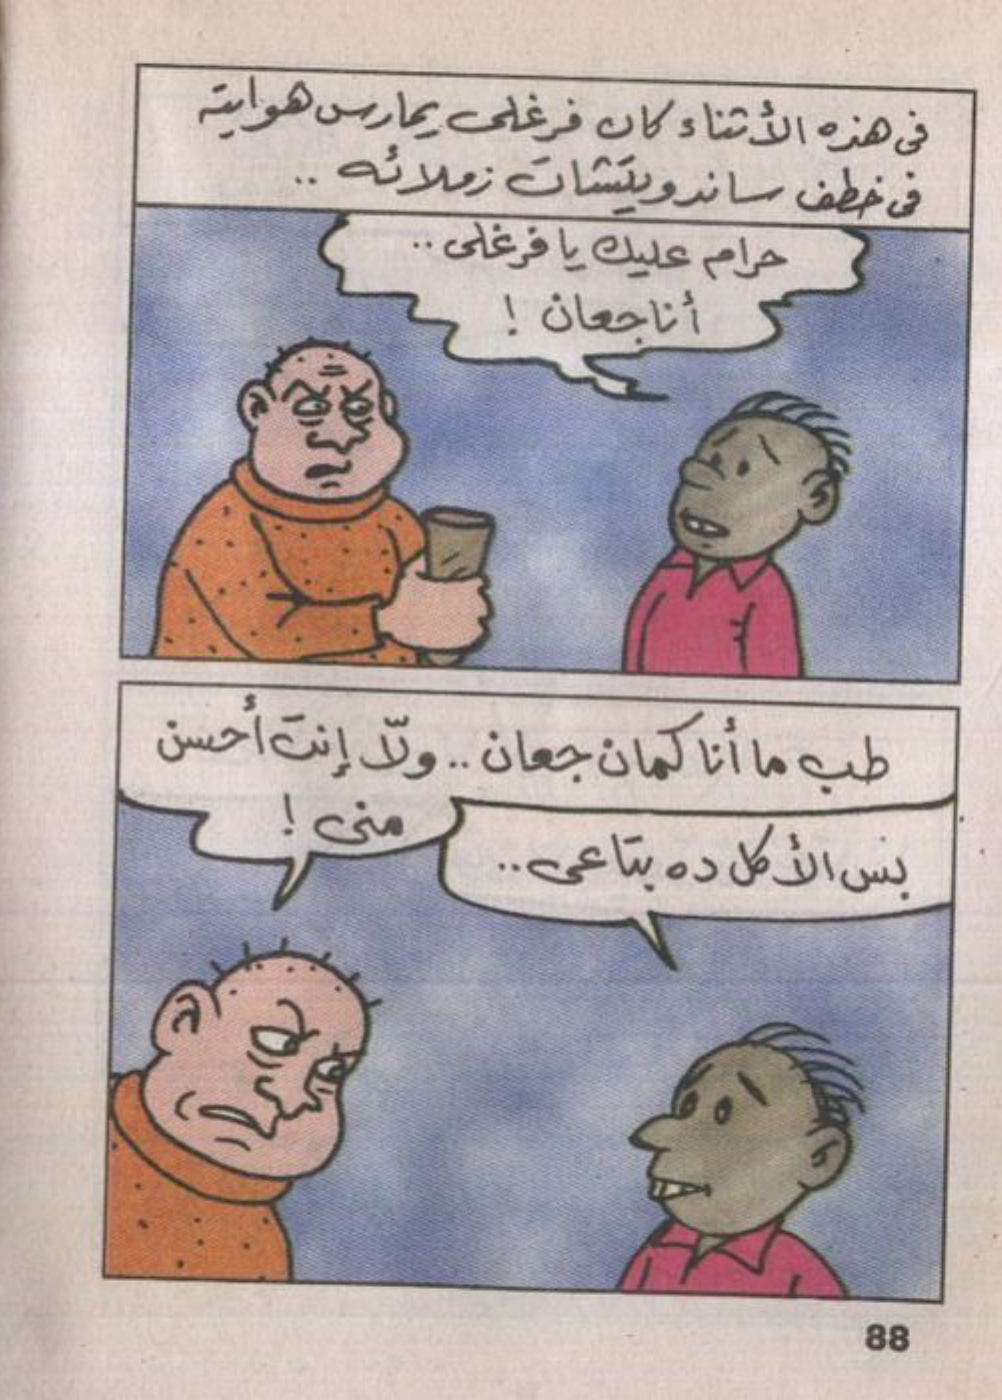 فى هذه الأثناء كان فرغلى يمارس هوايته
فى خطف ساندويتشات زملائه ..
حرام عليك يا فرغلى ..
أنا جعان !
طب ما أنا كمان جعان .. ولّا إنت أحسن
منى !
بس الأكل ده بتاعى ..
88